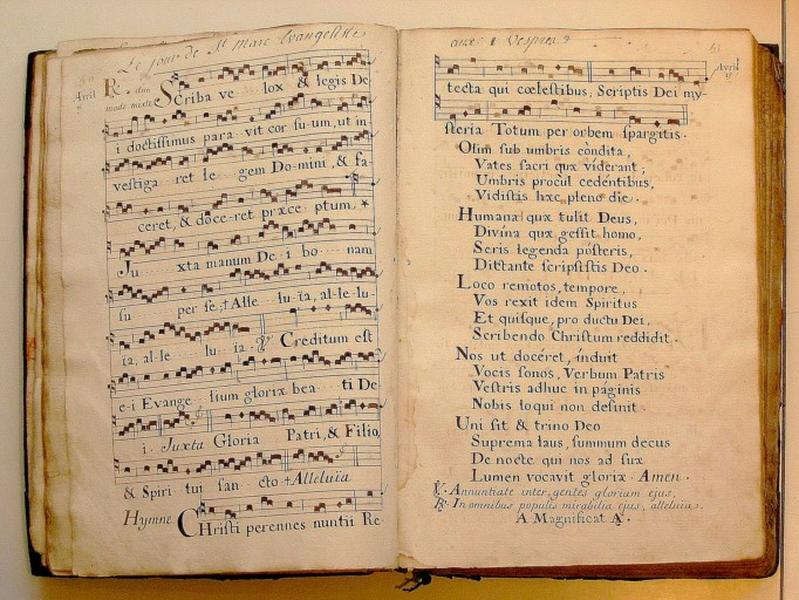 Le jour de St Marc Evangeliste
Avril
R. duo
mode mixte
Scriba ve lox & legis De
i doctissimus para vit cor su-um, ut in
vestiga ret le gem Do-mini, & fa-
ceret, & doce-ret præce ptum *
Ju xta manum De-i bo nam
su per se, † Alle lu-ïa, al-le-lu-
ïa, al-le lu ïa. V Creditum est
e-i Evange lium gloriæ bea ti De
i. Juxta Gloria Patri, & Filio,
& Spiri tui san cto † Alleluïa
Hymne CHristi perennes nuntii Re-
aux Vespres
Avril
tecta qui cœlestibus, Scriptis Dei my-
steria Totum per orbem spargitis.
Olim sub umbris còndita,
Vates sacri quæ víderant;
Umbris procul cedéntibus,
Vidistis hæc pleno die.
Humana quæ tulit Deus,
Divína quæ gessit homo,
Seris legenda pósteris,
Dictante scripsistis Deo.
Loco remotos, tempore,
Vos rexit idem Spiritus
Et quisque, pro ductu Dei,
Scribendo Christum reddidit.
Nos ut docéret, índuit
Vocis sonos, Verbum Patris
Vestris adhuc in páginis
Nobis loqui non desinit.
Uni sit & trino Deo
Suprema laus, summum decus
De nocte qui nos ad suæ
Lumen vocavit gloriæ. Amen.
V. Annuntiate inter gentes gloriam ejus,
R. In omnibus populis mirabilia ejus, alleluia.
A Magnificat A.